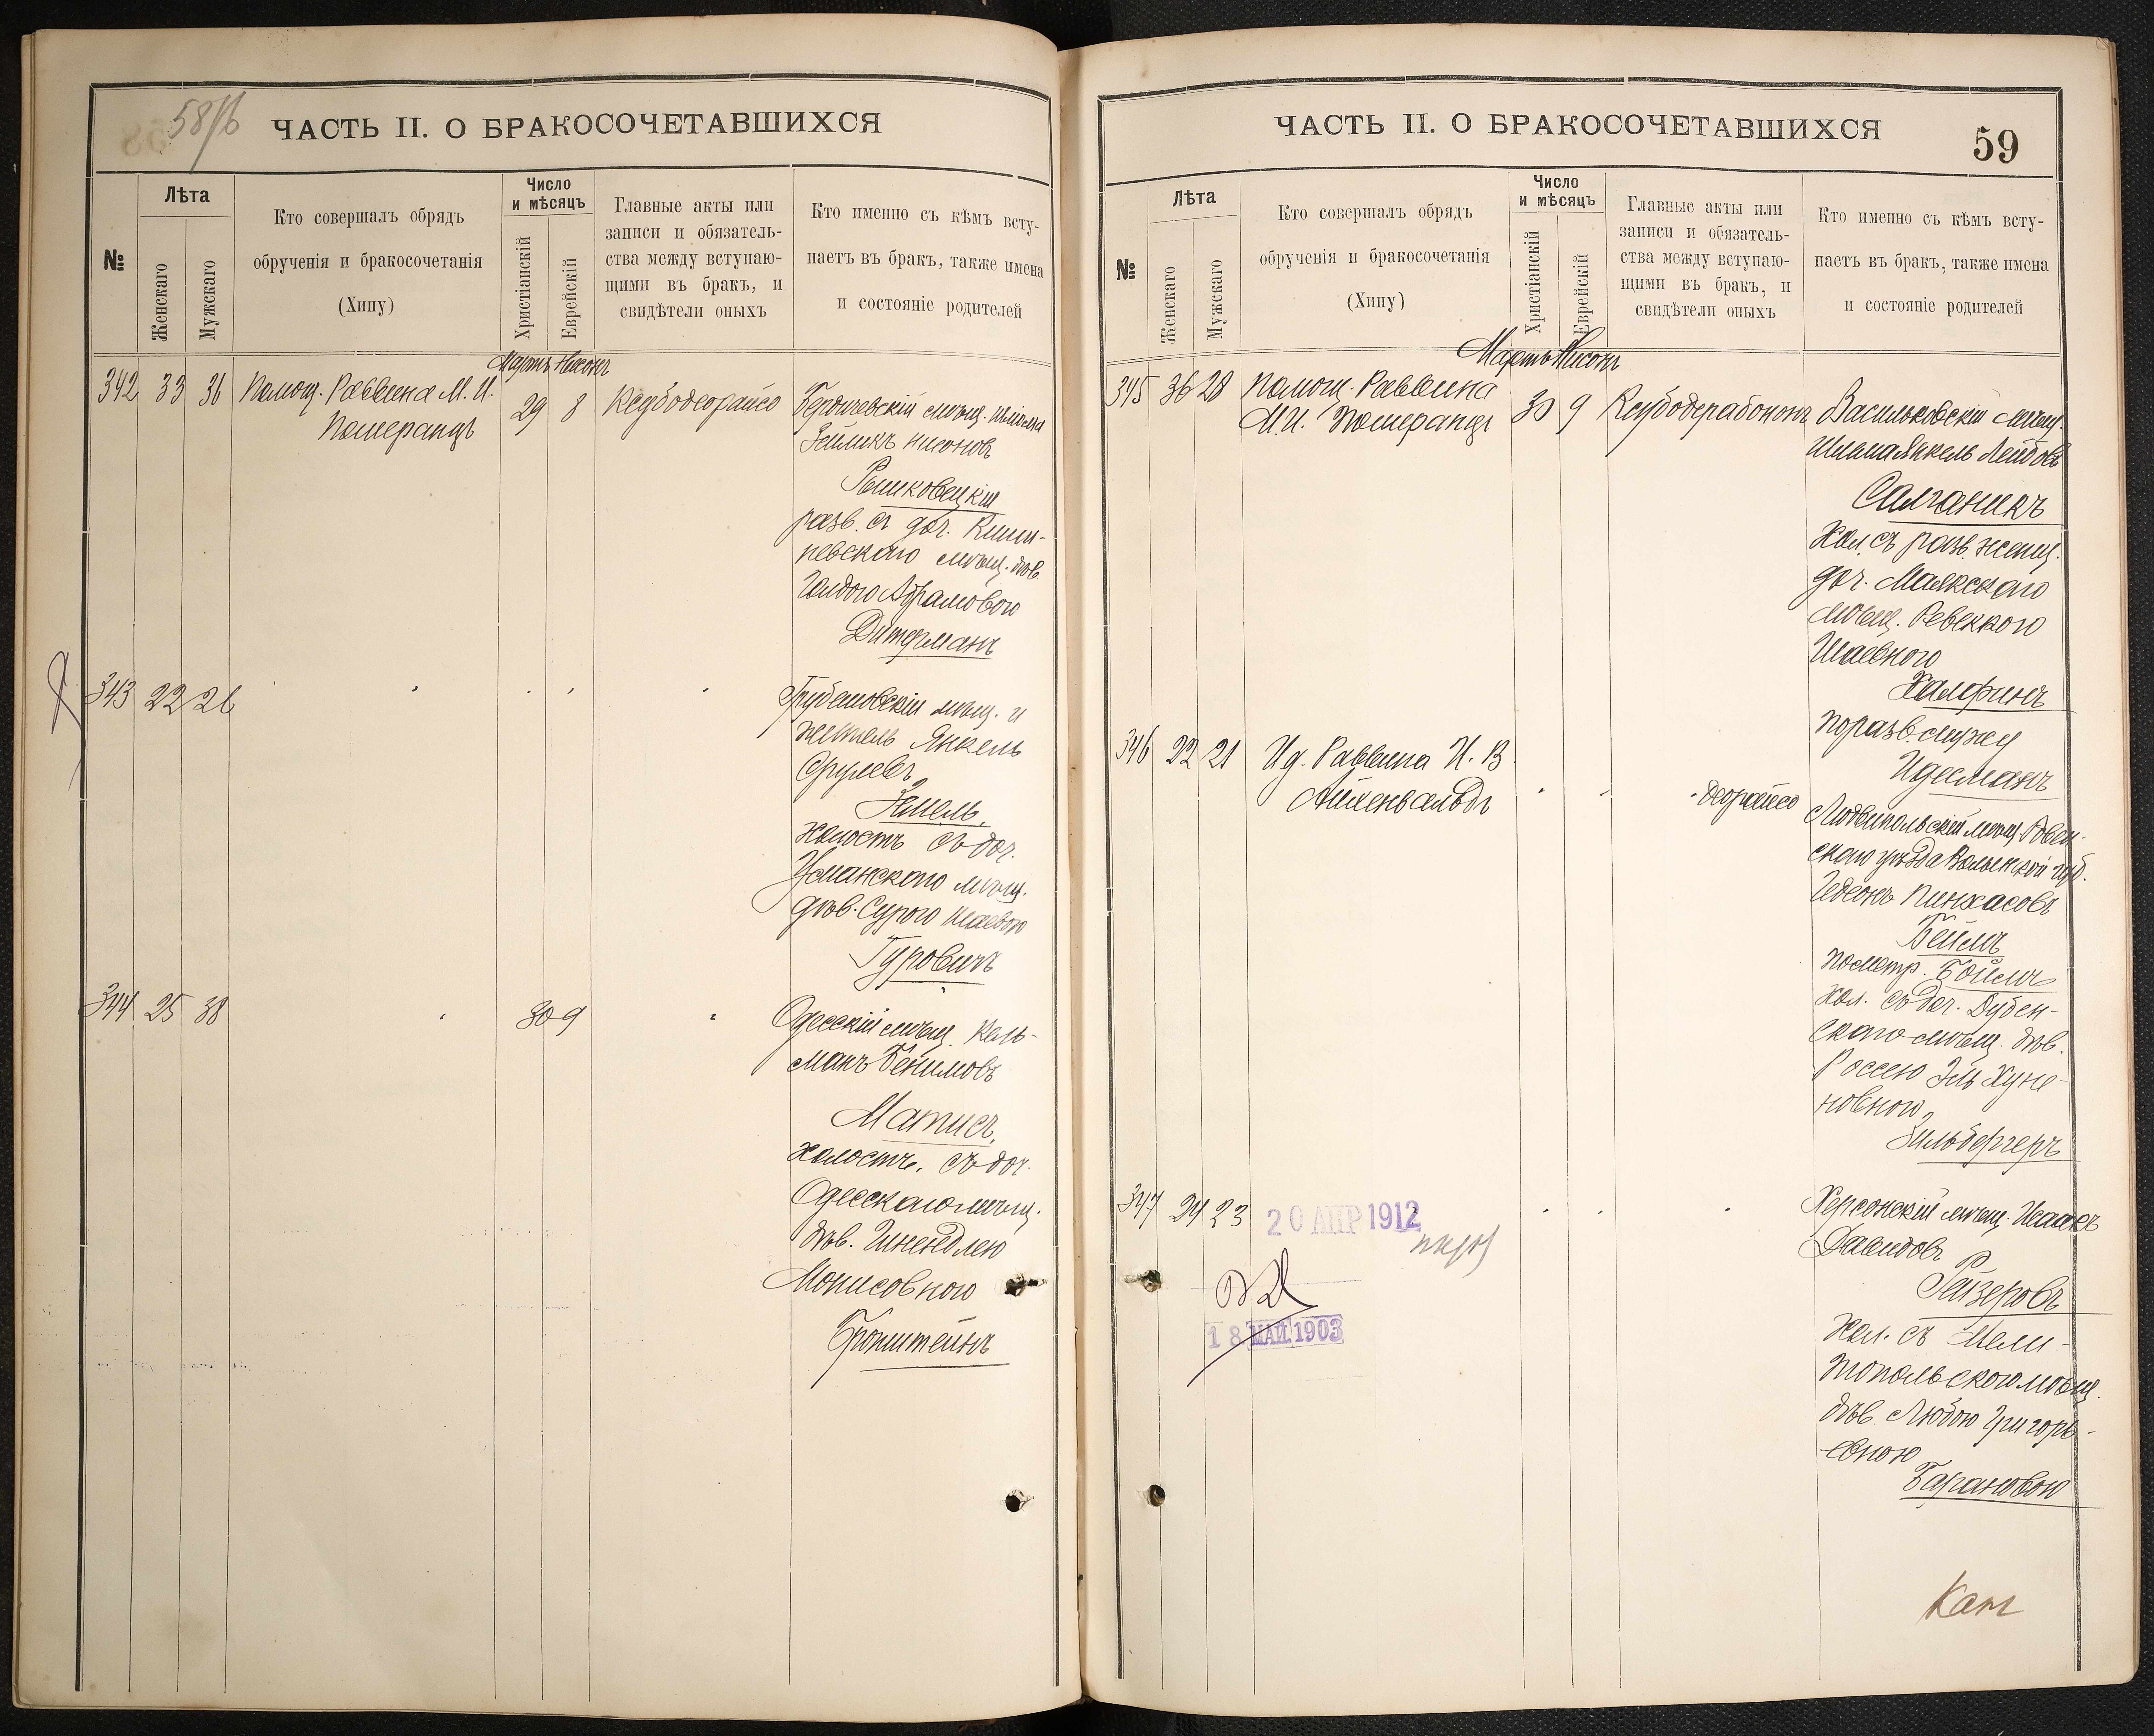 58/б
ЧАСТЬ II. О БРАКОСОЧЕТАВШИХСЯ
№
Лѣта
Женскаго
Мужскаго
Кто совершалъ обрядъ
обрученія и бракосочетанія
(Хипу)
Число
и мѣсяцъ
Христіанскій
Еврейскій
Главные акты или
записи и обязатель-
ства между вступаю-
щими въ бракъ, и
свидѣтели оныхъ
Кто именно съ кѣмъ всту-
паетъ въ бракъ, также имена
и состояніе родителей
Мартъ Нисонъ
342 33 36 Помощ. Раввина М. И.
Померанцъ
29 8 Ксубодеорайсо
Бердичевскій мѣщ.
Зейликъ Нисоновъ
Рашковецкій
разв. съ доч. Киши-
невскаго мѣщ. дѣв.
Голдою Абрамовою
Дитерманъ
343 22 26
Грубешовскій мѣщ. и
житель Янкель
Срулевъ
Зпель,
холостъ съ доч.
Уманскаго мѣщ.
дѣв. Сурою Шаевою
Гуровичъ
344 25 38
30 9
Одесскій мѣщ. Кель-
манъ Бенимовъ
Матисъ,
холостъ, съ доч.
Одесскаго мѣщ.
дѣв. Шнейдлею
Монисовною
Бронштейнъ
ЧАСТЬ II. О БРАКОСОЧЕТАВШИХСЯ
59
№
Лѣта
Женскаго
Мужскаго
Кто совершалъ обрядъ
обрученія и бракосочетанія
(Хипу)
Число
и мѣсяцъ
Христіанскій
Еврейскій
Главные акты или
записи и обязатель-
ства между вступаю-
щими въ бракъ, и
свидѣтели оныхъ
Кто именно съ кѣмъ всту-
паетъ въ бракъ, также имена
и состояніе родителей
Мартъ Нисонъ
345 36 28 Помощ. Раввина
М. И. Померанцъ
30 9 Ксубодерабононъ
Васильковскій мѣщ.
Шлема Янкель Лейбовъ
Салганикъ
хол. съ разв. женщ.
доч. Маякскаго
мѣщ. Ревеккою
Шаевною
Халфинъ
по разв. мужу
Идесманъ
346 22 21 И д. Раввина И. В.
Айхенвальдъ
деорайсо
Людвипольскій мѣщ. Ровен-
скаго уѣзда Волынской губ.
Гедеонъ Пинхасовъ
Бейлъ
по метр. Бойлъ
хол. съ доч. Дубен-
скаго мѣщ. дѣв.
Россею Эль Хуне-
новною
Зильбергеръ
347 24 23
20 АПР 1912
18 МАЙ 1903
Херсонскій мѣщ. Исаакъ
Давидовъ
Рейзеровъ
хол. съ Мели-
топольскою мѣщ.
дѣв. Любою Григорь-
евною
Барановою